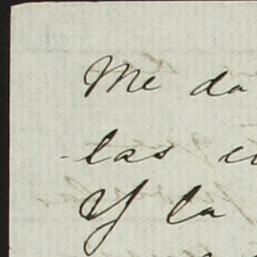 Me da
las
Y la